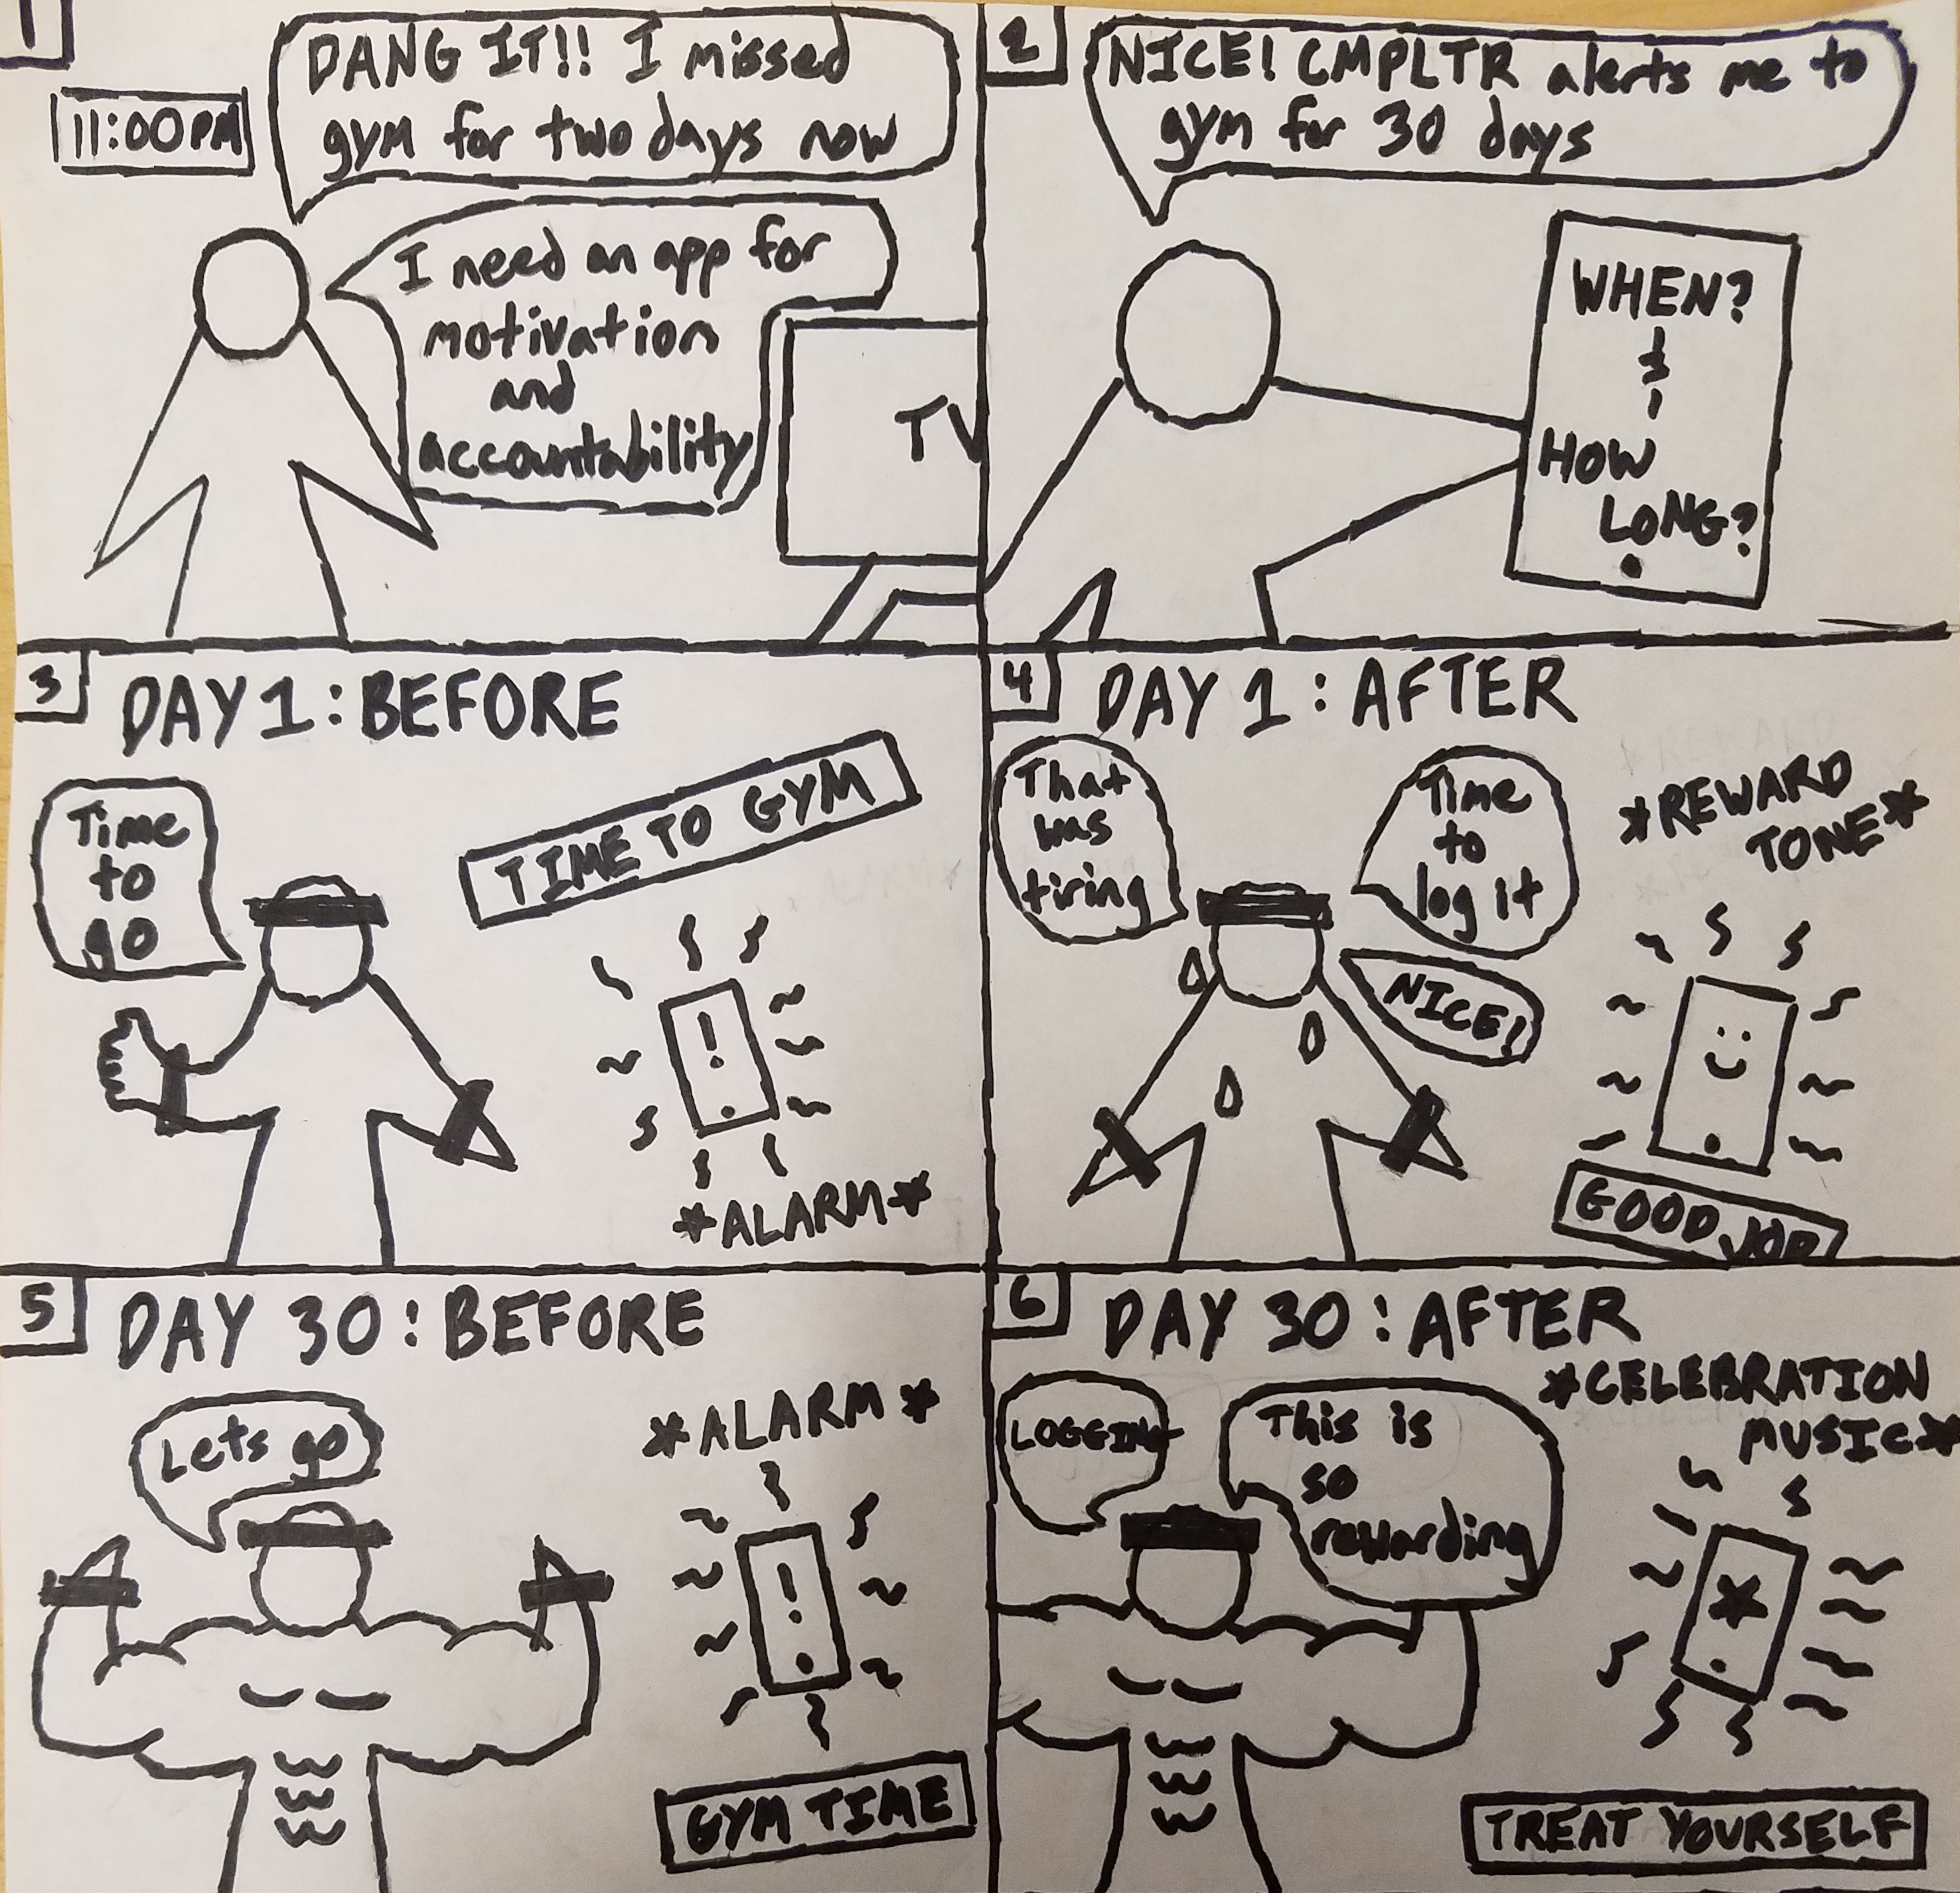 1
11:00PM
DANG IT!! I missed
gym for two days now
I need an app for
motivation
and
accountability
TV
2
NICE! CMPLTR alerts me to
gym for 30 days
WHEN?
&
HOW
LONG?
3
DAY 1: BEFORE
Time
to
go
TIME TO GYM
!
*ALARM*
4
DAY 1: AFTER
That
was
tiring
Time
to
log it
NICE!
*REWARD
TONE*
GOOD JOB
5
DAY 30: BEFORE
Lets go
*ALARM*
!
GYM TIME
6
DAY 30: AFTER
LOGGING
This is
so
rewarding
*CELEBRATION
MUSIC*
TREAT YOURSELF